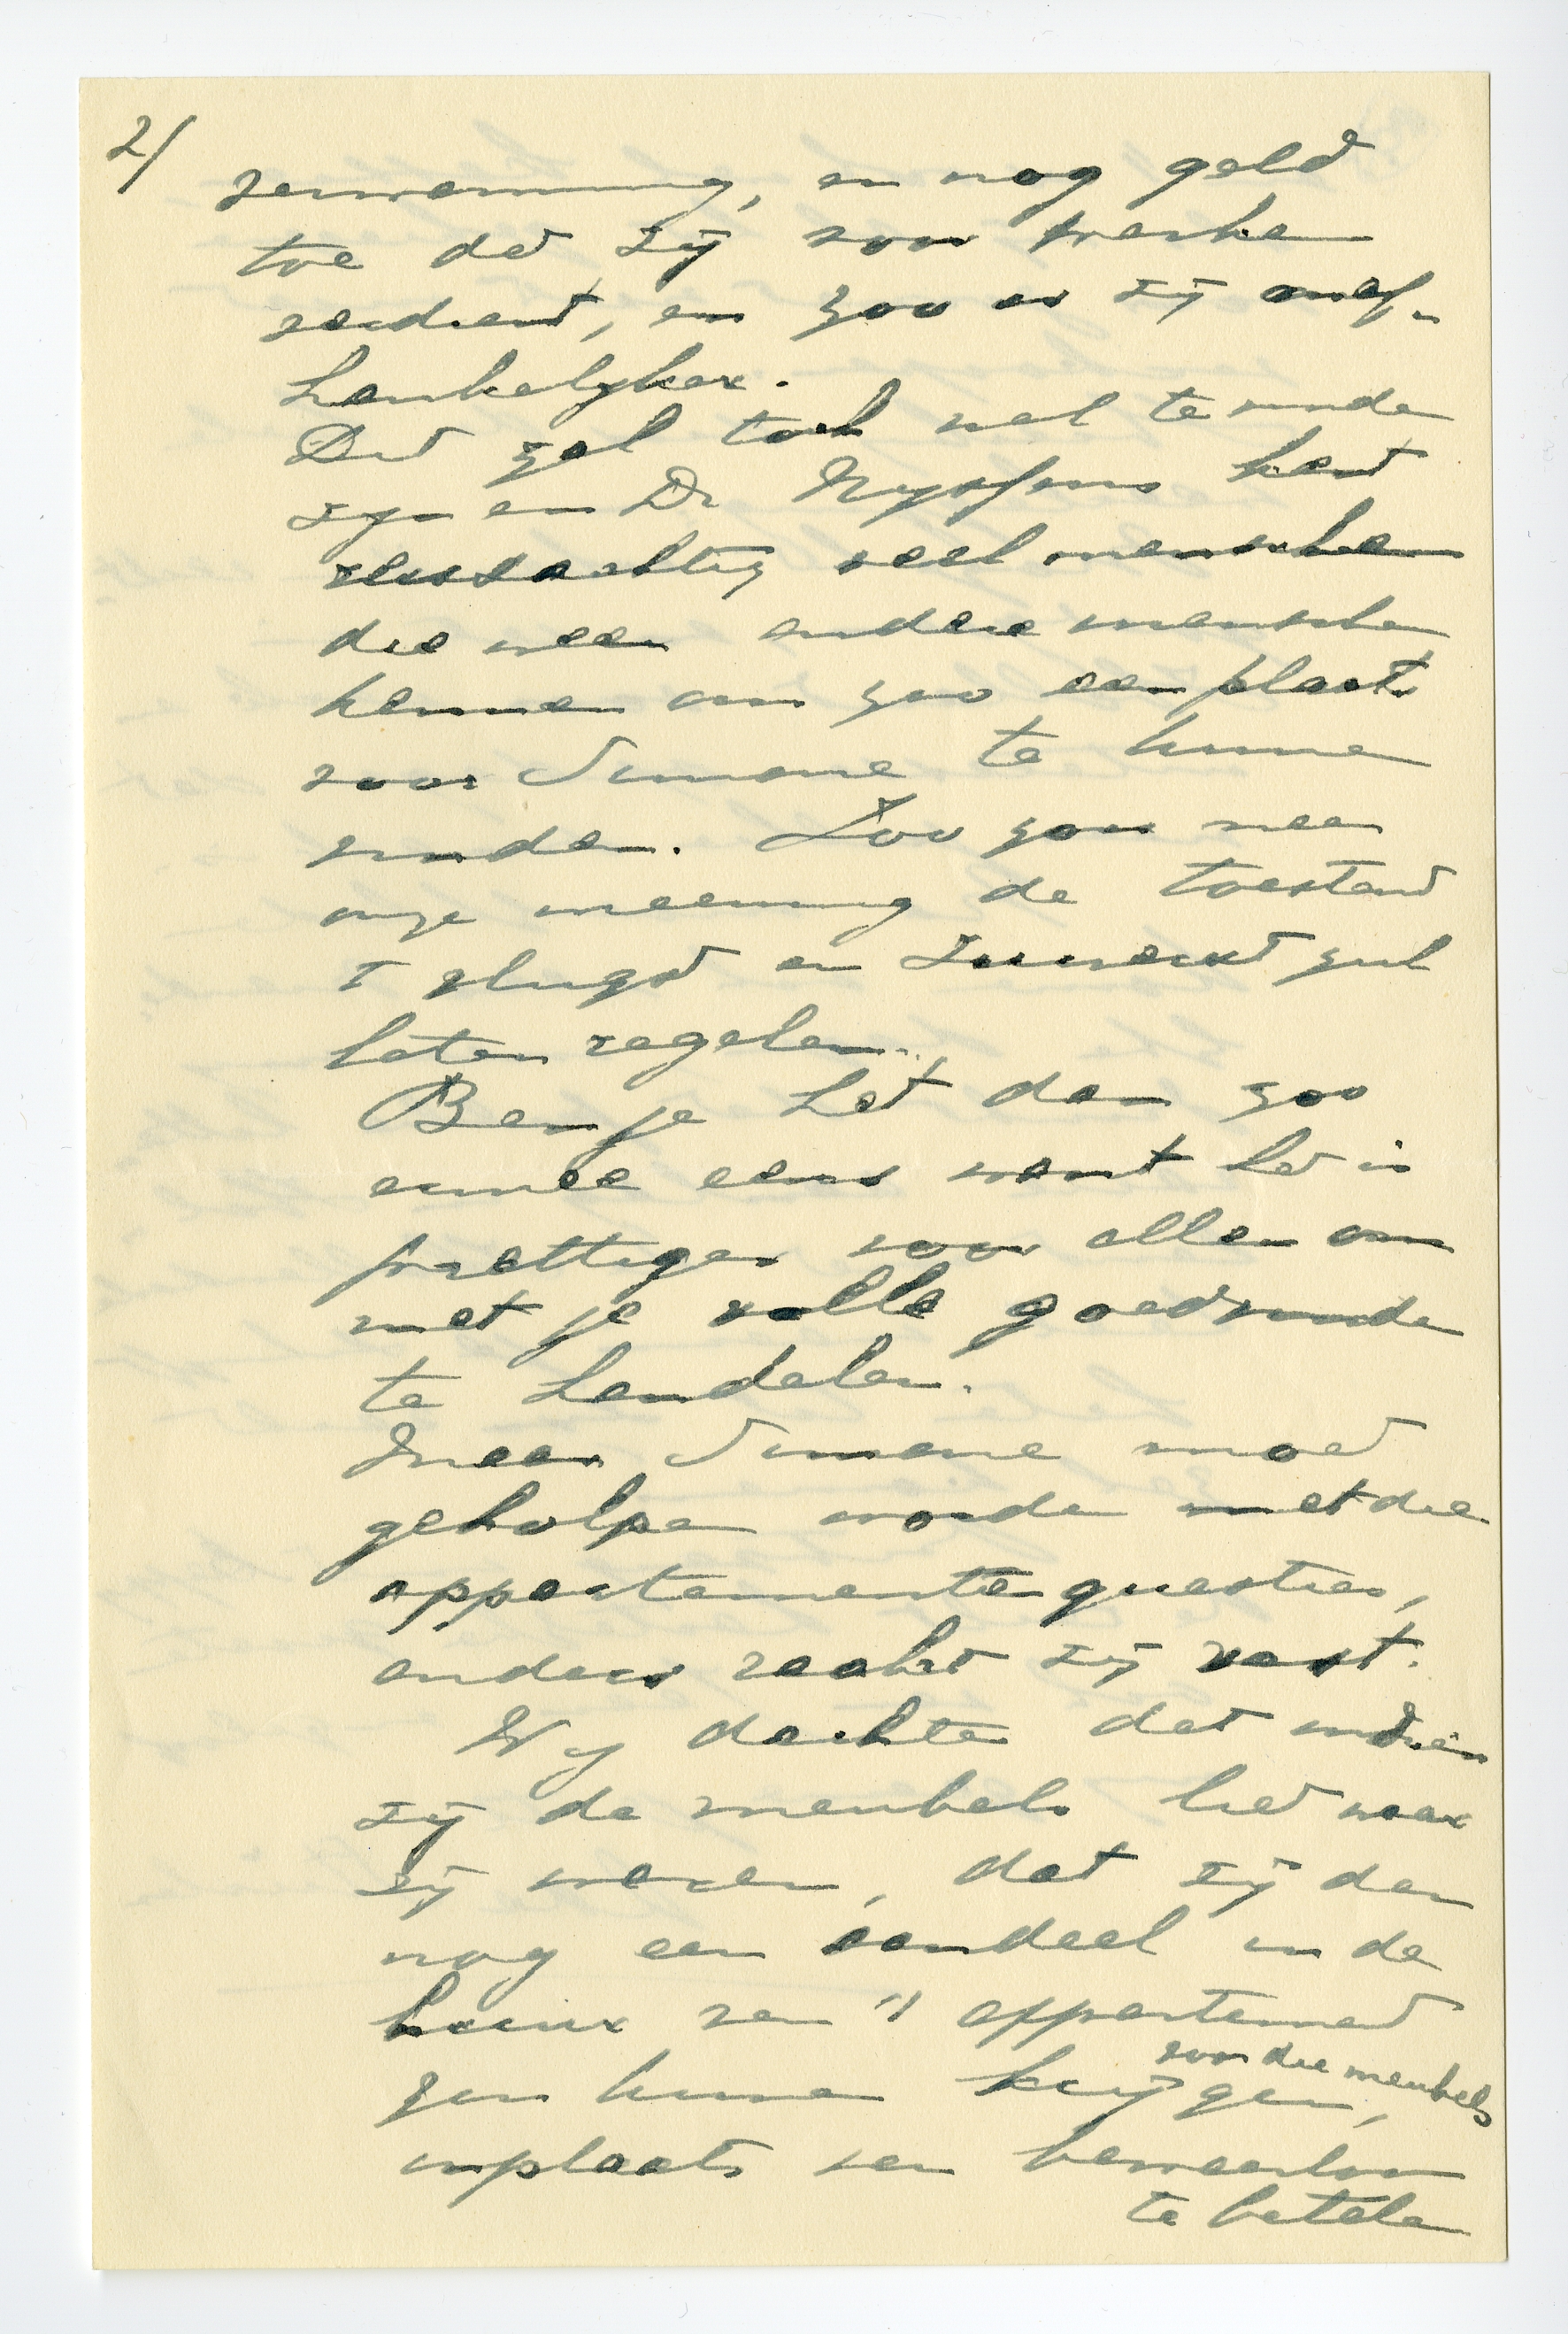 2/
verwarming, en nog geld
toe dat zij voor werken
verdient, en zoo is zij onaf-
hankelijker.
Dit zal toch wel te vinden
zijn en Dr Nyssens kent
veel menschen
die weer andere menschen
kennen om zoo een plaats
voor Simone te kunnen
vinden. Zoo zou naar
onze meening de toestand
't vlugst en zich
laten regelen.
Ben je het dan zoo
ermee eens want het is
prettiger voor allen om
met je volle goedvinden
te handelen.
Maar Simone moet
geholpen worden met die
appartementen questies,
anders raakt zij vast.
Wij dachten dat indien
zij de meubels liet waar
zij waren, dat zij dan
nog een aandeel in de
huur van 't appartement
zou kunnen krijgen,
voor die meubels
inplaats van bewaarloon
te betalen